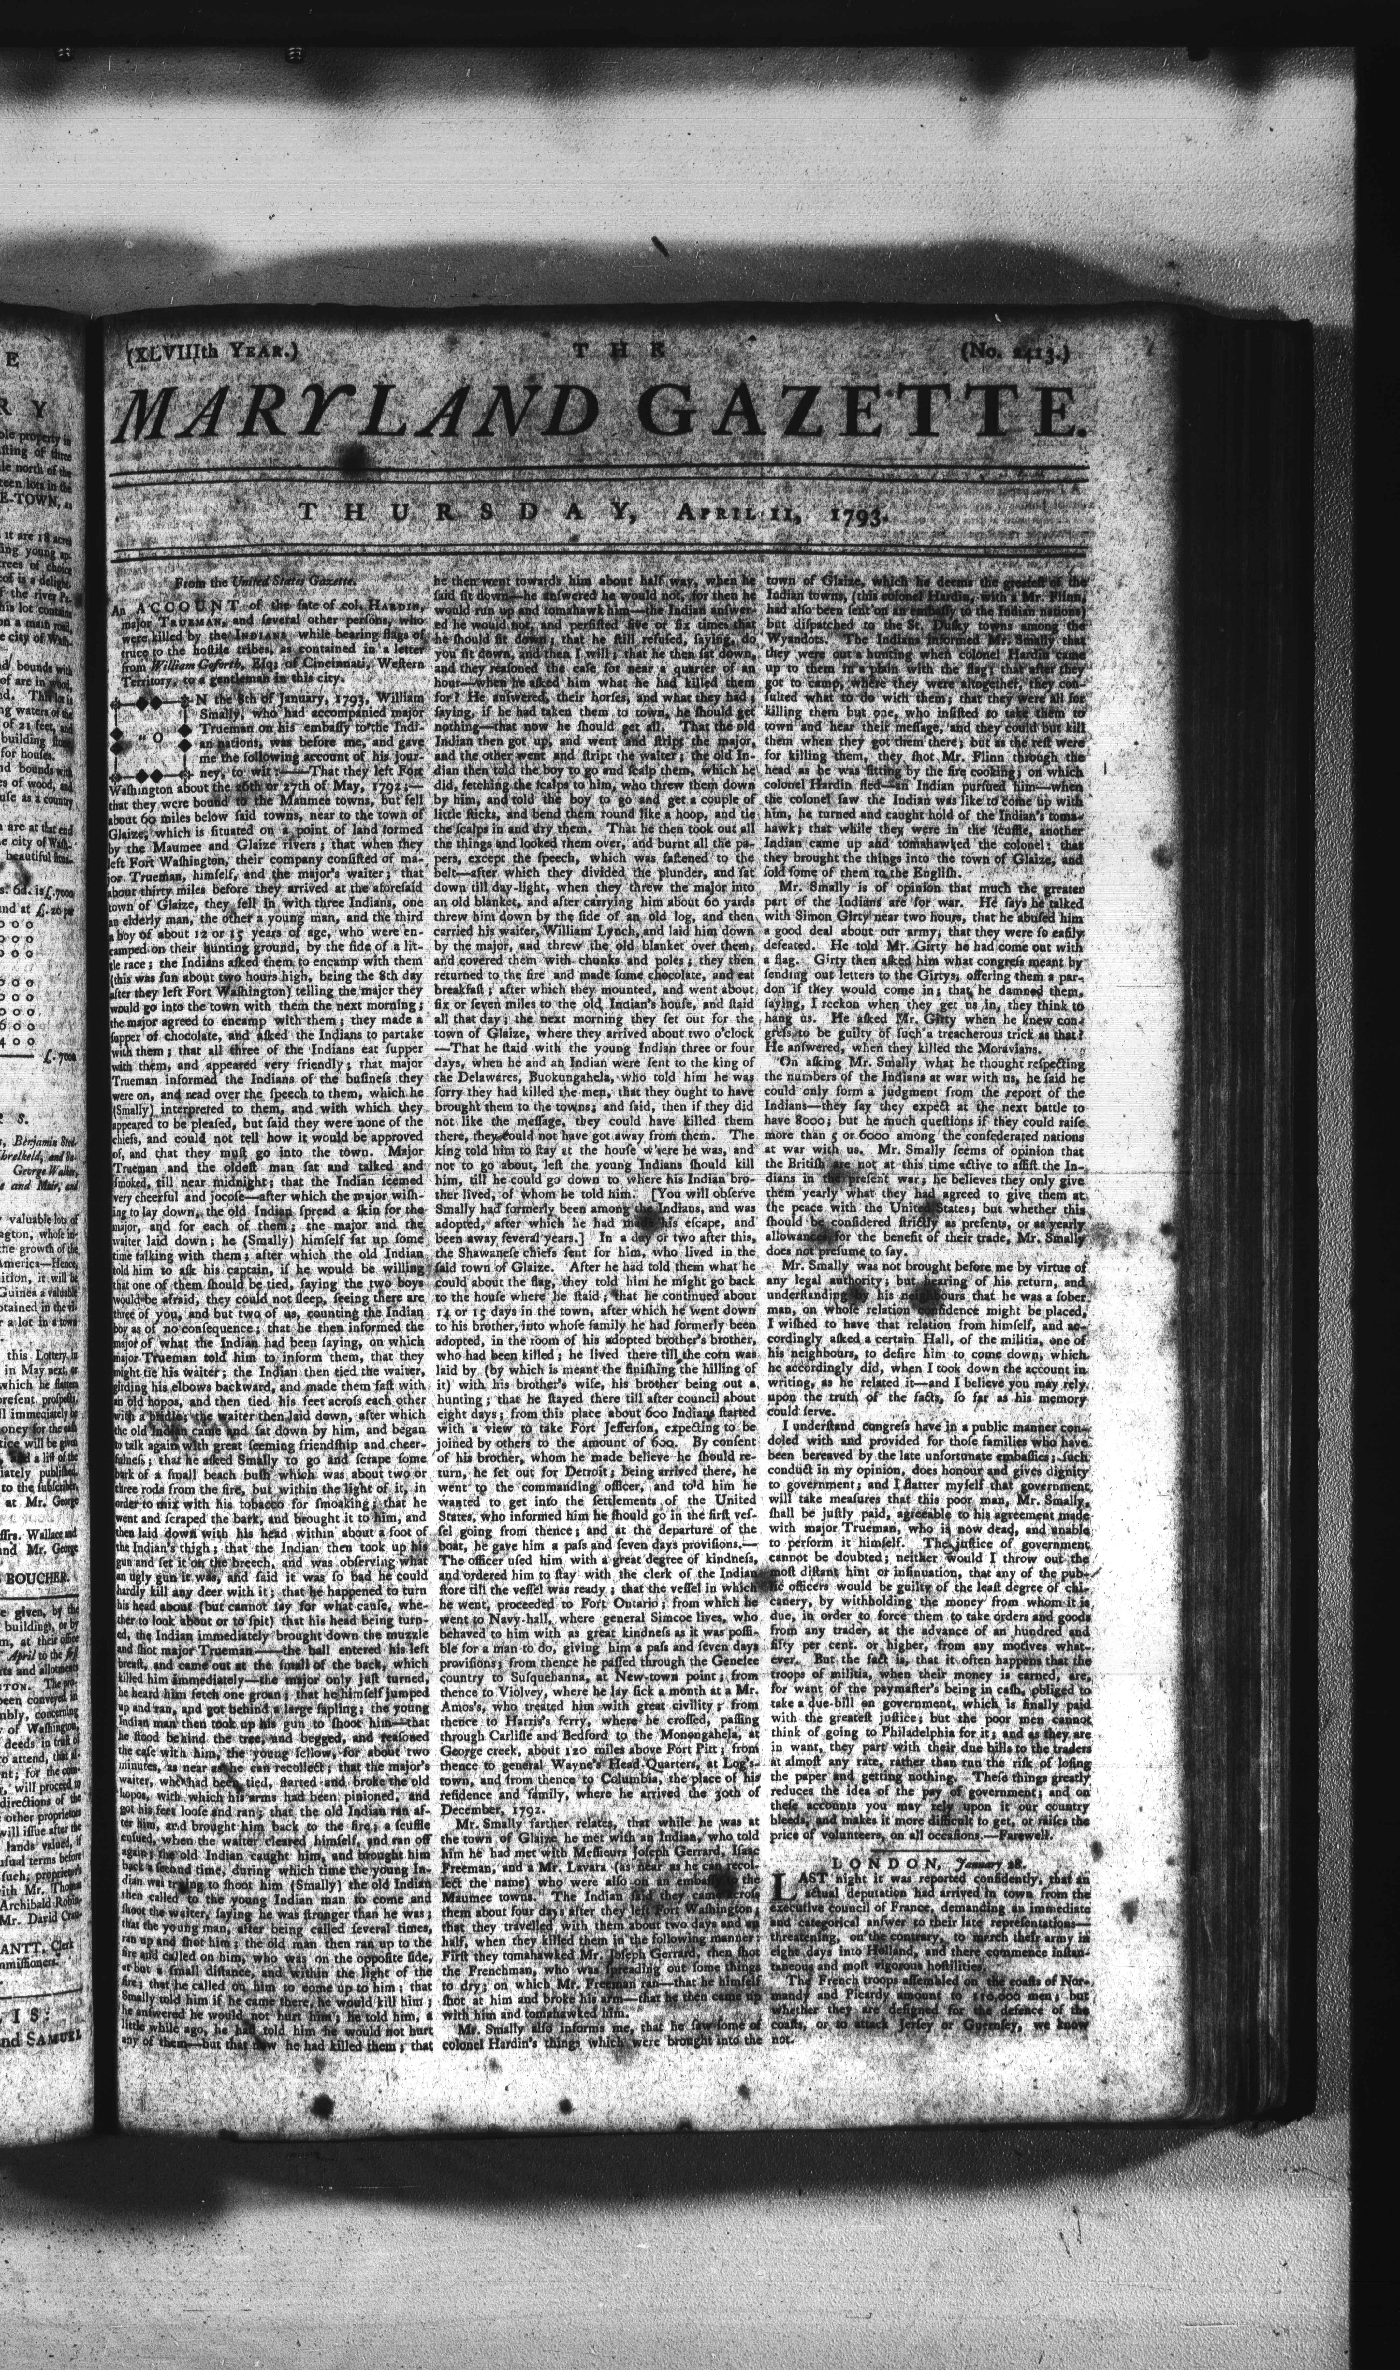 (XLVIIIth YEAR.)
THE
(No. 2413.)
MARYLAND GAZETTE.
THURSDAY, APRIL 11, 1793.
From the United States Gazette.
An ACCOUNT of the fate of col. HARDIN,
major TRUEMAN, and ſeveral other perſons, who
were killed by the INDIANS, while bearing flags of
truce to the hoſtile tribes, as contained in a letter
from William Goforth, Eſq; of Cincinnati, Weſtern
Territory, to a gentleman in this city.
"ON the 8th of January, 1793, William
Smally, who had accompanied major
Trueman on his embaſſy to the Indi-
an nations, was before me, and gave
me the following account of his jour-
ney, to wit:——That they left Fort
Waſhington about the 26th or 27th of May, 1792;—
that they were bound to the Maumee towns, but fell
about 60 miles below ſaid towns, near to the town of
Glaize, which is ſituated on a point of land formed
by the Maumee and Glaize rivers; that when they
left Fort Waſhington, their company conſiſted of ma-
jor Trueman, himſelf, and the major's waiter; that
about thirty miles before they arrived at the aforeſaid
town of Glaize, they fell in with three Indians, one
an elderly man, the other a young man, and the third
a boy of about 12 or 15 years of age, who were en-
camped on their hunting ground, by the ſide of a lit-
tle race; the Indians aſked them to encamp with them
(this was ſun about two hours high, being the 8th day
after they left Fort Waſhington) telling the major they
would go into the town with them the next morning;
the major agreed to encamp with them; they made a
ſupper of chocolate, and aſked the Indians to partake
with them; that all three of the Indians eat ſupper
with them, and appeared very friendly; that major
Trueman informed the Indians of the buſineſs they
were on, and read over the ſpeech to them, which he
(Smally) interpreted to them, and with which they
appeared to be pleaſed, but ſaid they were none of the
chiefs, and could not tell how it would be approved
of, and that they muſt go into the town. Major
Trueman and the oldeſt man ſat and talked and
ſmoked, till near midnight; that the Indian ſeemed
very cheerful and jocoſe—after which the major wiſh-
ing to lay down, the old Indian ſpread a ſkin for the
major, and for each of them; the major and the
waiter laid down; he (Smally) himſelf ſat up ſome
time talking with them; after which the old Indian
told him to aſk his captain, if he would be willing
that one of them ſhould be tied, ſaying the two boys
would be afraid, they could not ſleep, ſeeing there are
three of you, and but two of us, counting the Indian
boy as of no conſequence; that he then informed the
major of what the Indian had been ſaying, on which
major Trueman told him to inform them, that they
might tie his waiter; the Indian then tied the waiter,
girding his elbows backward, and made them faſt with
an old hopos, and then tied his feet acroſs each other
with a bridle; the waiter then laid down, after which
the old Indian came and ſat down by him, and began
to talk again with great ſeeming friendſhip and cheer-
fulneſs; that he aſked Smally to go and ſcrape ſome
bark of a ſmall beach buſh which was about two or
three rods from the fire, but within the light of it, in
order to mix with his tobacco for ſmoaking; that he
went and ſcraped the bark, and brought it to him, and
then laid down with his head within about a foot of
the Indian's thigh; that the Indian then took up his
gun and ſet it on the breech, and was obſerving what
an ugly gun it was, and ſaid it was ſo bad he could
hardly kill any deer with it; that he happened to turn
his head about (but cannot ſay for what cauſe, whe-
ther to look about or to ſpit) that his head being turn-
ed, the Indian immediately brought down the muzzle
and ſhot major Trueman——the ball entered his left
breaſt, and came out at the ſmall of the back, which
killed him immediately—the major only juſt turned,
he heard him fetch one groan; that he himſelf jumped
up and ran, and got behind a large ſapling; the young
Indian man then took up his gun to ſhoot him—that
he ſtood behind the tree, and begged, and reaſoned
the caſe with him, the young fellow, for about two
minutes, as near as he can recollect; that the major's
waiter, who had been tied, ſtarted and broke the old
hopos, with which his arms had been pinioned, and
got his feet looſe and ran; that the old Indian ran af-
ter him, and brought him back to the fire; a ſcuffle
enſued, when the waiter cleared himſelf, and ran off
again; the old Indian caught him, and brought him
back a ſecond time, during which time the young In-
dian was trying to ſhoot him (Smally) the old Indian
then called to the young Indian man to come and
ſhoot the waiter, ſaying he was ſtronger than he was;
that the young man, after being called ſeveral times,
ran up and ſhot him; the old man then ran up to the
fire and called on him, who was on the oppoſite ſide,
at but a ſmall diſtance, and within the light of the
fire; that he called on him to come up to him; that
Smally told him if he came there, he would kill him;
he anſwered he would not hurt him; he told him, a
little while ago, he had told him he would not hurt
any of them—but that now he had killed them; that
he then went towards him about half way, when he
ſaid ſit down—he anſwered he would not, for then he
would run up and tomahawk him—the Indian anſwer-
ed he would not, and perſiſted five or ſix times that
he ſhould ſit down; that he ſtill refuſed, ſaying, do
you ſit down, and then I will; that he then ſat down,
and they reaſoned the caſe for near a quarter of an
hour—when he aſked him what he had killed them
for? He anſwered, their horſes, and what they had;
ſaying, if he had taken them to town, he ſhould get
nothing—that now he ſhould get all. That the old
Indian then got up, and went and ſtript the major,
and the other went and ſtript the waiter; the old In-
dian then told the boy to go and ſcalp them, which he
did, fetching the ſcalps to him, who threw them down
by him, and told the boy to go and get a couple of
little ſticks, and bend them round like a hoop, and tie
the ſcalps in and dry them. That he then took out all
the things and looked them over, and burnt all the pa-
pers, except the ſpeech, which was faſtened to the
belt—after which they divided the plunder, and ſat
down till day-light, when they threw the major into
an old blanket, and after carrying him about 60 yards
threw him down by the ſide of an old log, and then
carried his waiter, William Lynch, and laid him down
by the major, and threw the old blanket over them,
and covered them with chunks and poles; they then
returned to the fire and made ſome chocolate, and eat
breakfaſt; after which they mounted, and went about
ſix or ſeven miles to the old Indian's houſe, and ſtaid
all that day; the next morning they ſet out for the
town of Glaize, where they arrived about two o'clock
—That he ſtaid with the young Indian three or four
days, when he and an Indian were ſent to the king of
the Delawares, Buokungahela, who told him he was
ſorry they had killed the men, that they ought to have
brought them to the towns; and ſaid, then if they did
not like the meſſage, they could have killed them
there, they could not have got away from them. The
king told him to ſtay at the houſe where he was, and
not to go about, leſt the young Indians ſhould kill
him, till he could go down to where his Indian bro-
ther lived, of whom he told him. [You will obſerve
Smally had formerly been among the Indians, and was
adopted, after which he had made his eſcape, and
been away ſeveral years.] In a day or two after this,
the Shawaneſe chiefs ſent for him, who lived in the
ſaid town of Glaize. After he had told them what he
could about the flag, they told him he might go back
to the houſe where he ſtaid; that he continued about
14 or 15 days in the town, after which he went down
to his brother, into whoſe family he had formerly been
adopted, in the room of his adopted brother's brother,
who had been killed; he lived there till the corn was
laid by (by which is meant the finiſhing the hilling of
it) with his brother's wife, his brother being out a
hunting; that he ſtayed there till after council about
eight days; from this place about 600 Indians ſtarted
with a view to take Fort Jefferſon, expecting to be
joined by others to the amount of 620. By conſent
of his brother, whom he made believe he ſhould re-
turn, he ſet out for Detroit; being arrived there, he
went to the commanding officer, and told him he
wanted to get into the ſettlements of the United
States, who informed him he ſhould go in the firſt veſ-
ſel going from thence; and at the departure of the
boat, he gave him a paſs and ſeven days proviſions.—
The officer uſed him with a great degree of kindneſs,
and ordered him to ſtay with the clerk of the Indian
ſtore till the veſſel was ready; that the veſſel in which
he went, proceeded to Fort Ontario; from which he
went to Navy-hall, where general Simcoe lives, who
behaved to him with as great kindneſs as it was poſſi-
ble for a man to do, giving him a paſs and ſeven days
proviſions; from thence he paſſed through the Geneſee
country to Suſquehanna, at New-town point; from
thence to Violvey, where he lay ſick a month at a Mr.
Amos's, who treated him with great civility; from
thence to Harris's ferry, where he croſſed, paſſing
through Carliſle and Bedford to the Monongahela, at
George creek, about 120 miles above Fort Pitt; from
thence to general Wayne's Head-Quarters, at Log's-
town, and from thence to Columbia, the place of his
reſidence and family, where he arrived the 30th of
December, 1792.
Mr. Smally farther relates, that while he was at
the town of Glaize, he met with an Indian, who told
him he had met with Meſſieurs Joſeph Gerrard, Iſaac
Freeman, and a Mr. Lavara (as near as he can recol-
lect the name) who were alſo on an embaſſy to the
Maumee towns. The Indian ſaid they came acroſs
them about four days after they left Fort Waſhington;
that they travelled with them about two days and an
half, when they killed them in the following manner:
Firſt they tomahawked Mr. Joſeph Gerrard, then ſhot
the Frenchman, who was ſpreading out ſome things
to dry; on which Mr. Freeman ran—that he himſelf
ſhot at him and broke his arm—that he then came up
with him and tomahawked him.
Mr. Smally alſo informs me, that he ſaw ſome of
colonel Hardin's things which were brought into the
town of Glaize, which he deems the greateſt of the
Indian towns, (this colonel Hardin, with a Mr. Flinn,
had alſo been ſent on an embaſſy to the Indian nations)
but diſpatched to the St. Duſky towns among the
Wyandots. The Indians informed Mr. Smally that
they were out a hunting when colonel Hardin came
up to them in a plain with the flag; that after they
got to camp, where they were altogether, they con-
ſulted what to do with them; that they were all for
killing them but one, who inſiſted to take them to
town and hear their meſſage, and they could but kill
them when they got them there; but as the reſt were
for killing them, they ſhot Mr. Flinn through the
head as he was ſitting by the fire cooking; on which
colonel Hardin fled—an Indian purſued him—when
the colonel ſaw the Indian was like to come up with
him, he turned and caught hold of the Indian's toma-
hawk; that while they were in the ſcuffle, another
Indian came up and tomahawked the colonel: that
they brought the things into the town of Glaize, and
ſold ſome of them to the Engliſh.
Mr. Smally is of opinion that much the greater
part of the Indians are for war. He ſays he talked
with Simon Girty near two hours, that he abuſed him
a good deal about our army, that they were ſo eaſily
defeated. He told Mr. Girty he had come out with
a flag. Girty then aſked him what congreſs meant by
ſending out letters to the Girtys, offering them a par-
don if they would come in; that he damned them,
ſaying, I reckon when they get us in, they think to
hang us. He aſked Mr. Girty when he knew con-
greſs to be guilty of ſuch a treacherous trick as that?
He anſwered, when they killed the Moravians.
On aſking Mr. Smally what he thought reſpecting
the numbers of the Indians at war with us, he ſaid he
could only form a judgment from the report of the
Indians—they ſay they expect at the next battle to
have 8000; but he much queſtions if they could raiſe
more than 5 or 6000 among the confederated nations
at war with us. Mr. Smally ſeems of opinion that
the Britiſh are not at this time active to aſſiſt the In-
dians in the preſent war; he believes they only give
them yearly what they had agreed to give them at
the peace with the United States; but whether this
ſhould be conſidered ſtrictly as preſents, or as yearly
allowances for the benefit of their trade, Mr. Smally
does not preſume to ſay.
Mr. Smally was not brought before me by virtue of
any legal authority; but hearing of his return, and
underſtanding by his neighbours that he was a ſober
man, on whoſe relation confidence might be placed,
I wiſhed to have that relation from himſelf, and ac-
cordingly aſked a certain Hall, of the militia, one of
his neighbours, to deſire him to come down, which
he accordingly did, when I took down the account in
writing, as he related it—and I believe you may rely
upon the truth of the facts, ſo far as his memory
could ſerve.
I underſtand congreſs have in a public manner con-
doled with and provided for thoſe families who have
been bereaved by the late unfortunate embaſſies; ſuch
conduct in my opinion, does honour and gives dignity
to government; and I flatter myſelf that government
will take meaſures that this poor man, Mr. Smally,
ſhall be juſtly paid, agreeable to his agreement made
with major Trueman, who is now dead, and unable
to perform it himſelf. The juſtice of government
cannot be doubted; neither would I throw out the
moſt diſtant hint or inſinuation, that any of the pub-
lic officers would be guilty of the leaſt degree of chi-
canery, by withholding the money from whom it is
due, in order to force them to take orders and goods
from any trader, at the advance of an hundred and
fifty per cent. or higher, from any motives what-
ever. But the fact is, that it often happens that the
troops of militia, when their money is earned, are,
for want of the paymaſter's being in caſh, obliged to
take a due-bill on government, which is finally paid
with the greateſt juſtice; but the poor men cannot
think of going to Philadelphia for it; and as they are
in want, they part with their due bills to the traders
at almoſt any rate, rather than run the riſk of loſing
the paper and getting nothing. Theſe things greatly
reduces the idea of the pay of government; and on
theſe accounts you may rely upon it our country
bleeds, and makes it more difficult to get, or raiſes the
price of volunteers, on all occaſions.—Farewell.
LONDON, January 28.
LAST night it was reported confidently, that an
actual deputation had arrived in town from the
executive council of France, demanding an immediate
and categorical anſwer to their late repreſentations—
threatening, on the contrary, to march their army in
eight days into Holland, and there commence inſtan-
taneous and moſt vigorous hoſtilities.
The French troops aſſembled on the coaſts of Nor-
mandy and Picardy amount to 110,000 men; but
whether they are deſigned for the defence of the
coaſts, or to attack Jerſey or Guernſey, we know
not.